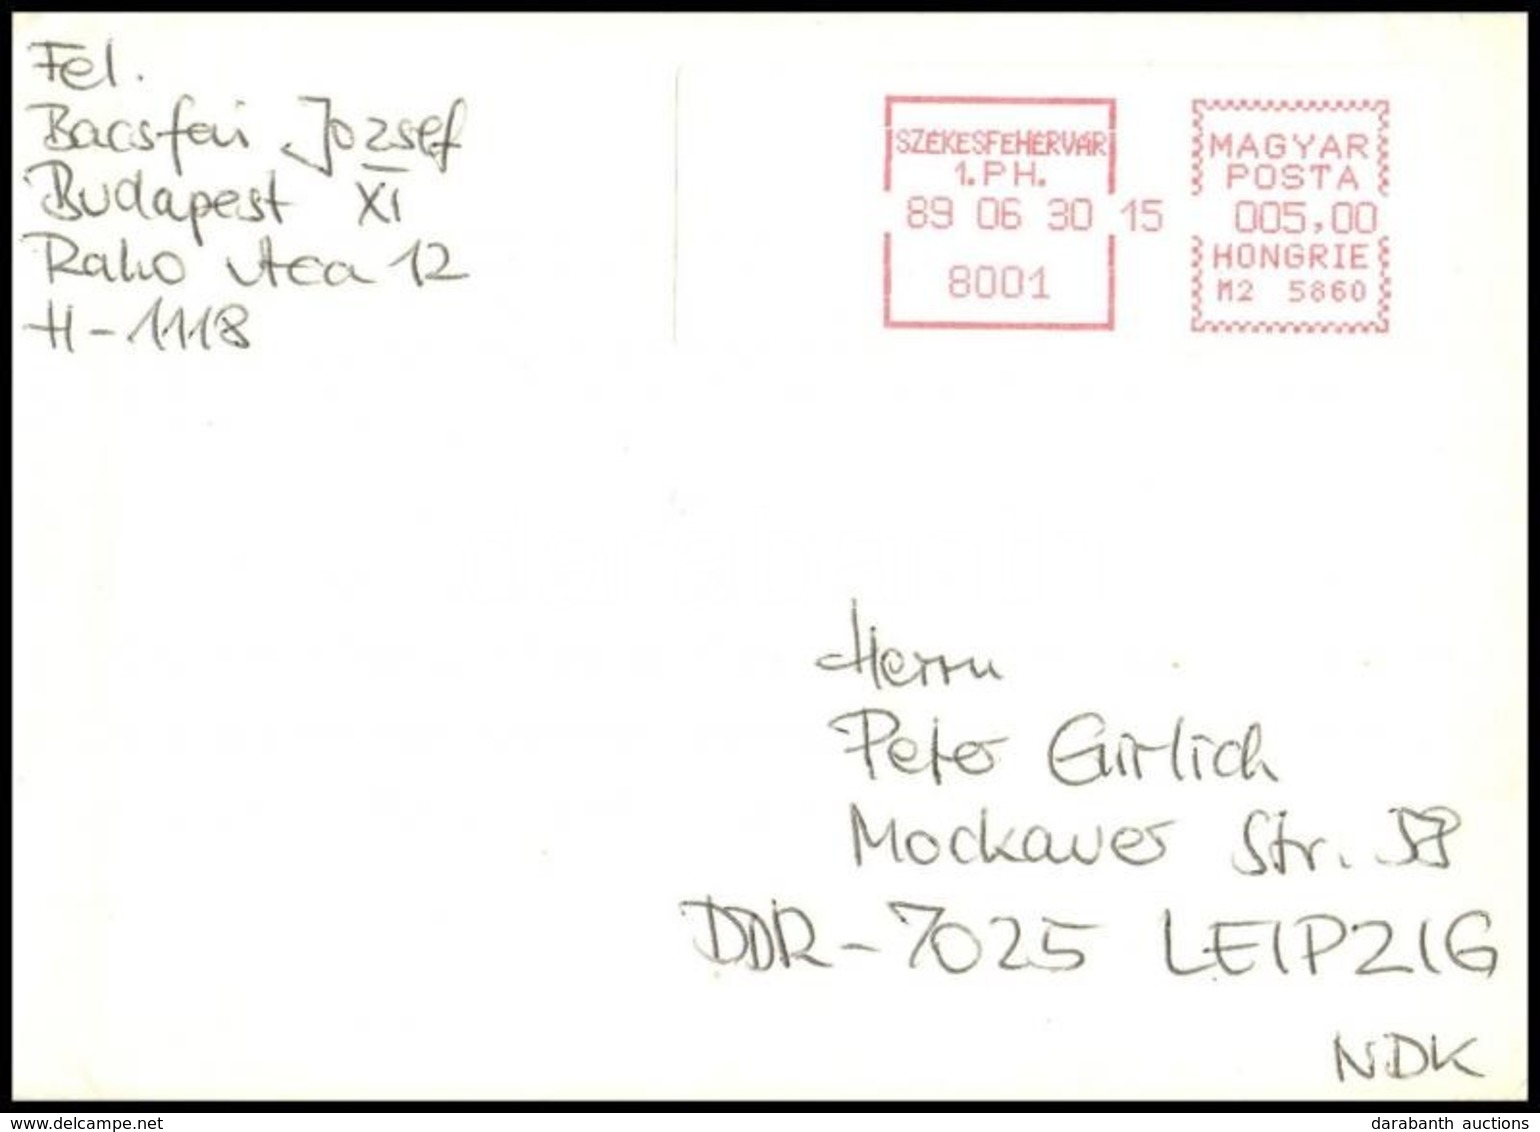 Fel.
Bacsfai József
Budapest XI
Raho utca 12
H-1118
SZÉKESFEHÉRVÁR
1.PH.
89 06 30 15
8001
MAGYAR
POSTA
005,00
HONGRIE
M2 5860
Herrn
Peter Girlich
Mockauer Str.
DDR-7025 LEIPZIG
NDK
www.delcampe.net
darabanth auctions